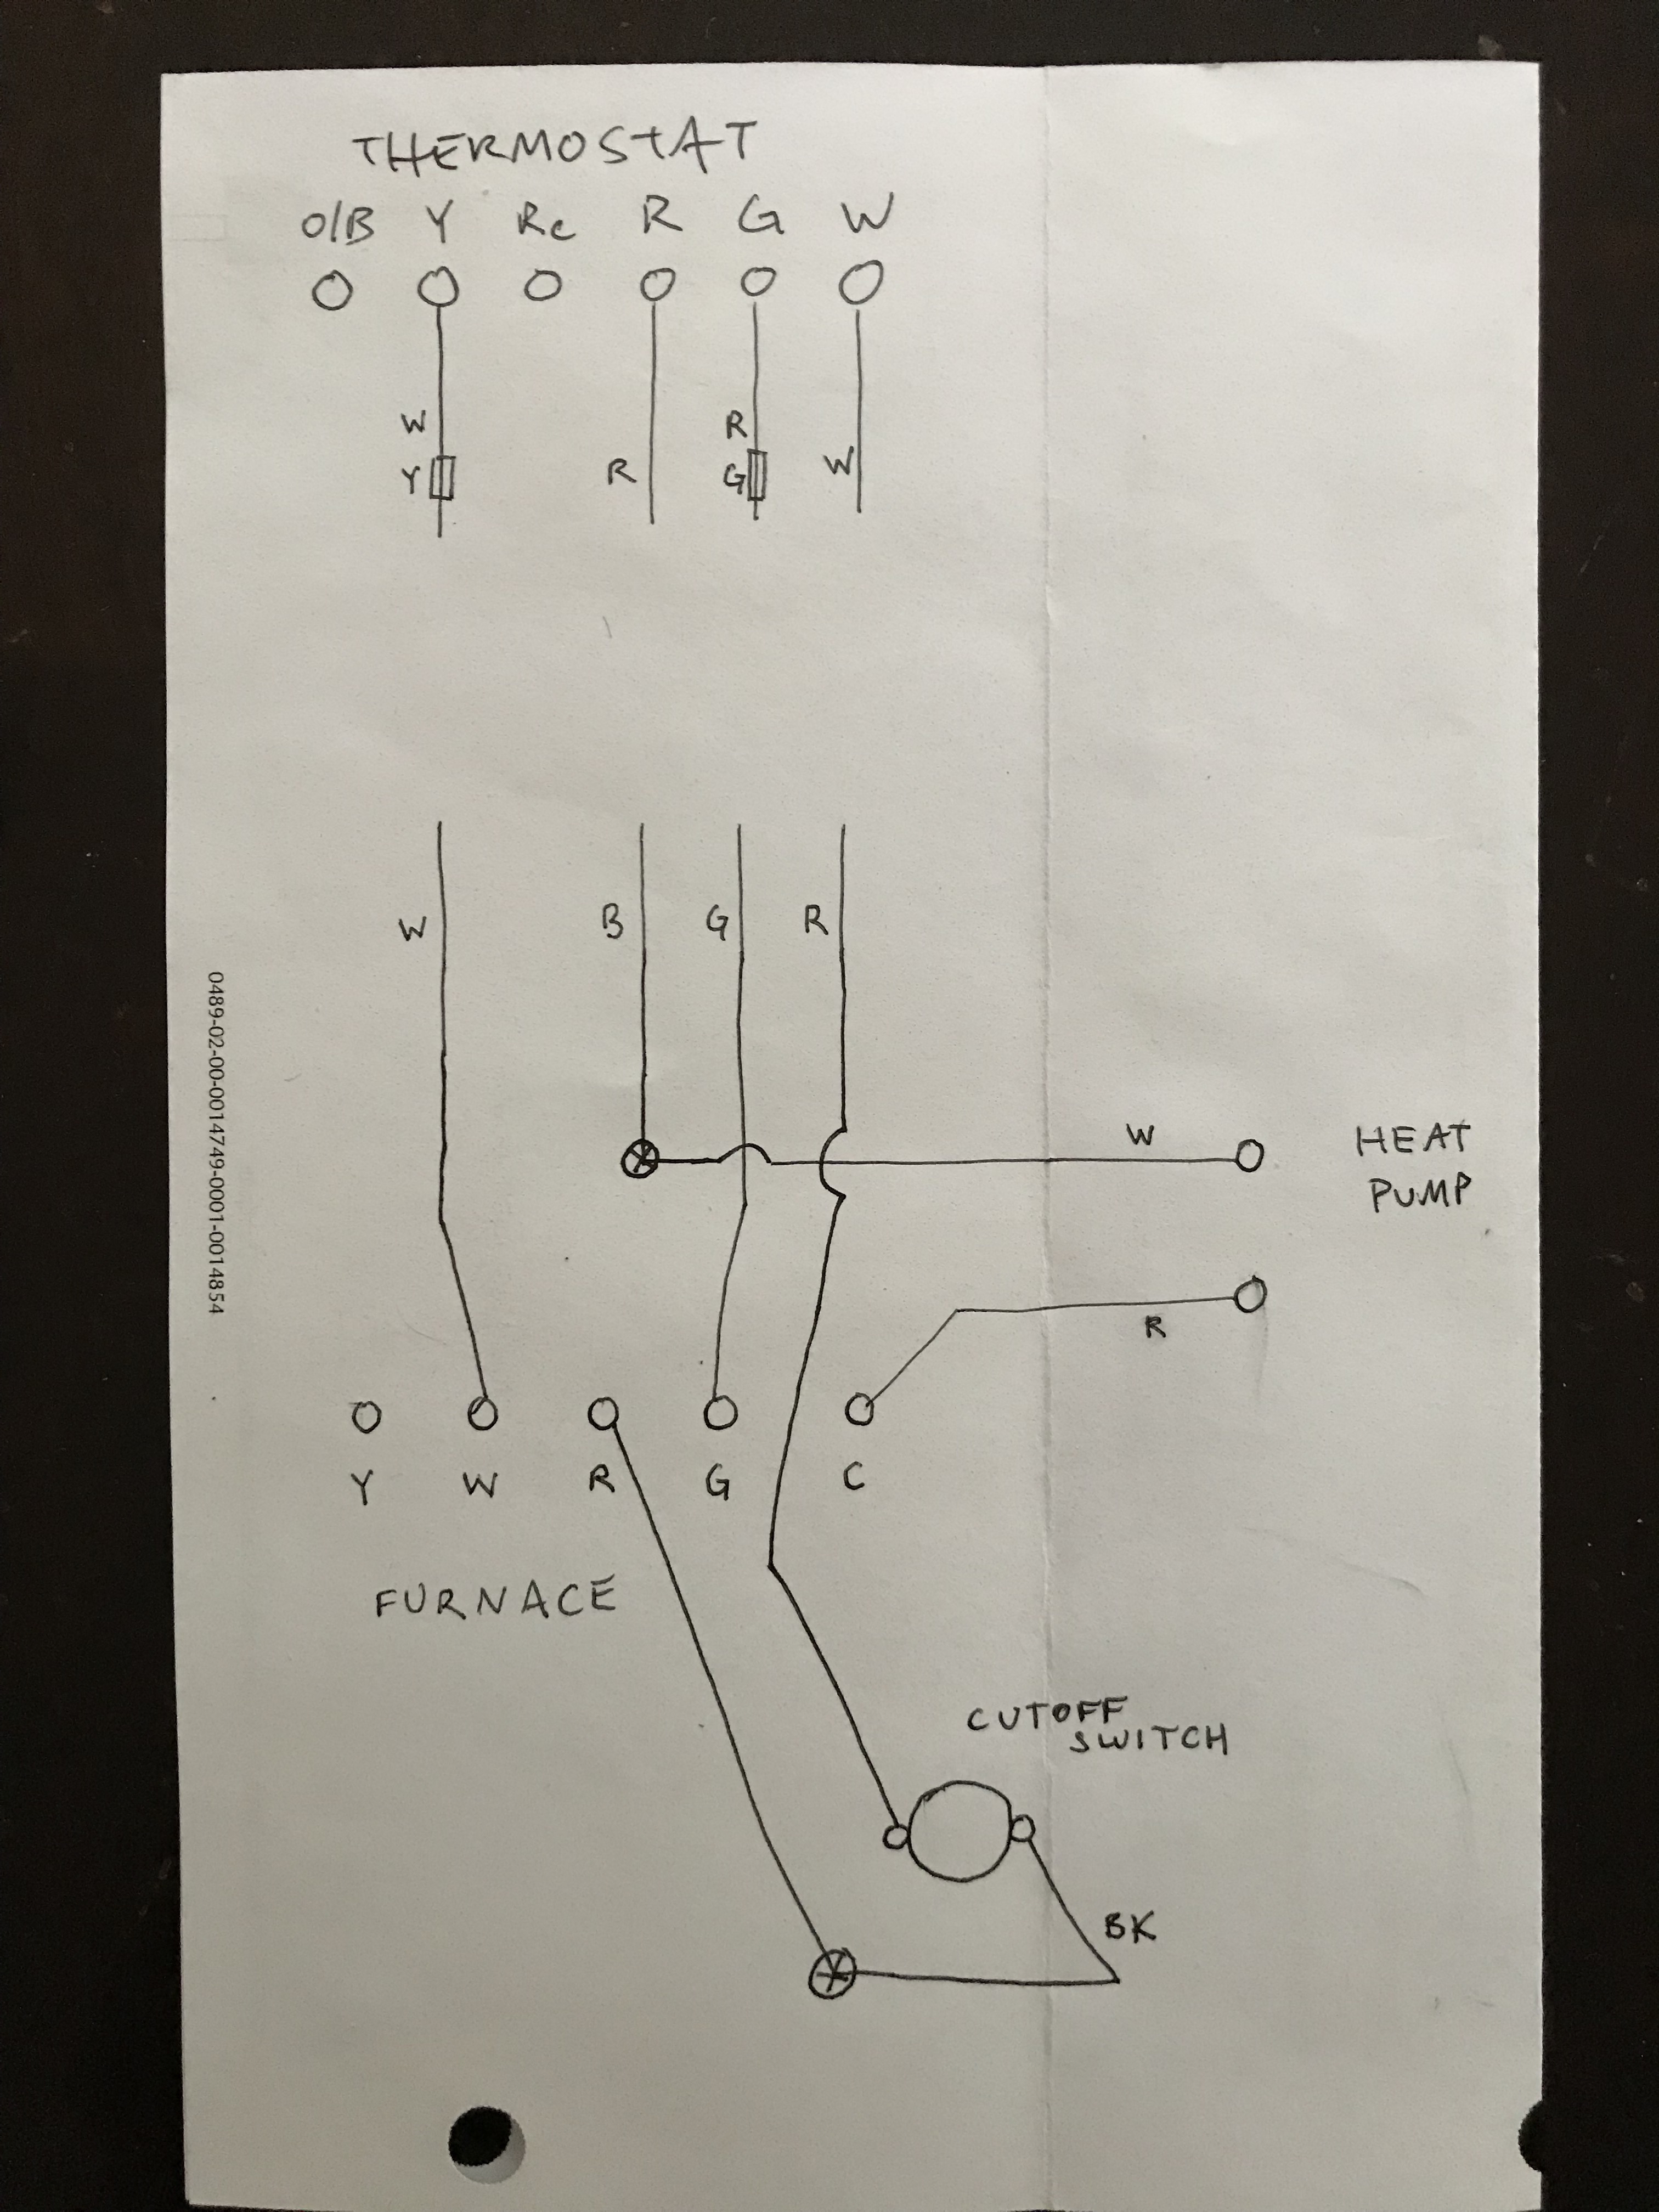 THERMOSTAT
O/B Y Rc R G W
W R
Y R G W
W B G R
0489-02-00-0014749-0001-0014854
W HEAT
PUMP
R
Y W R G C
FURNACE
CUTOFF
SWITCH
BK